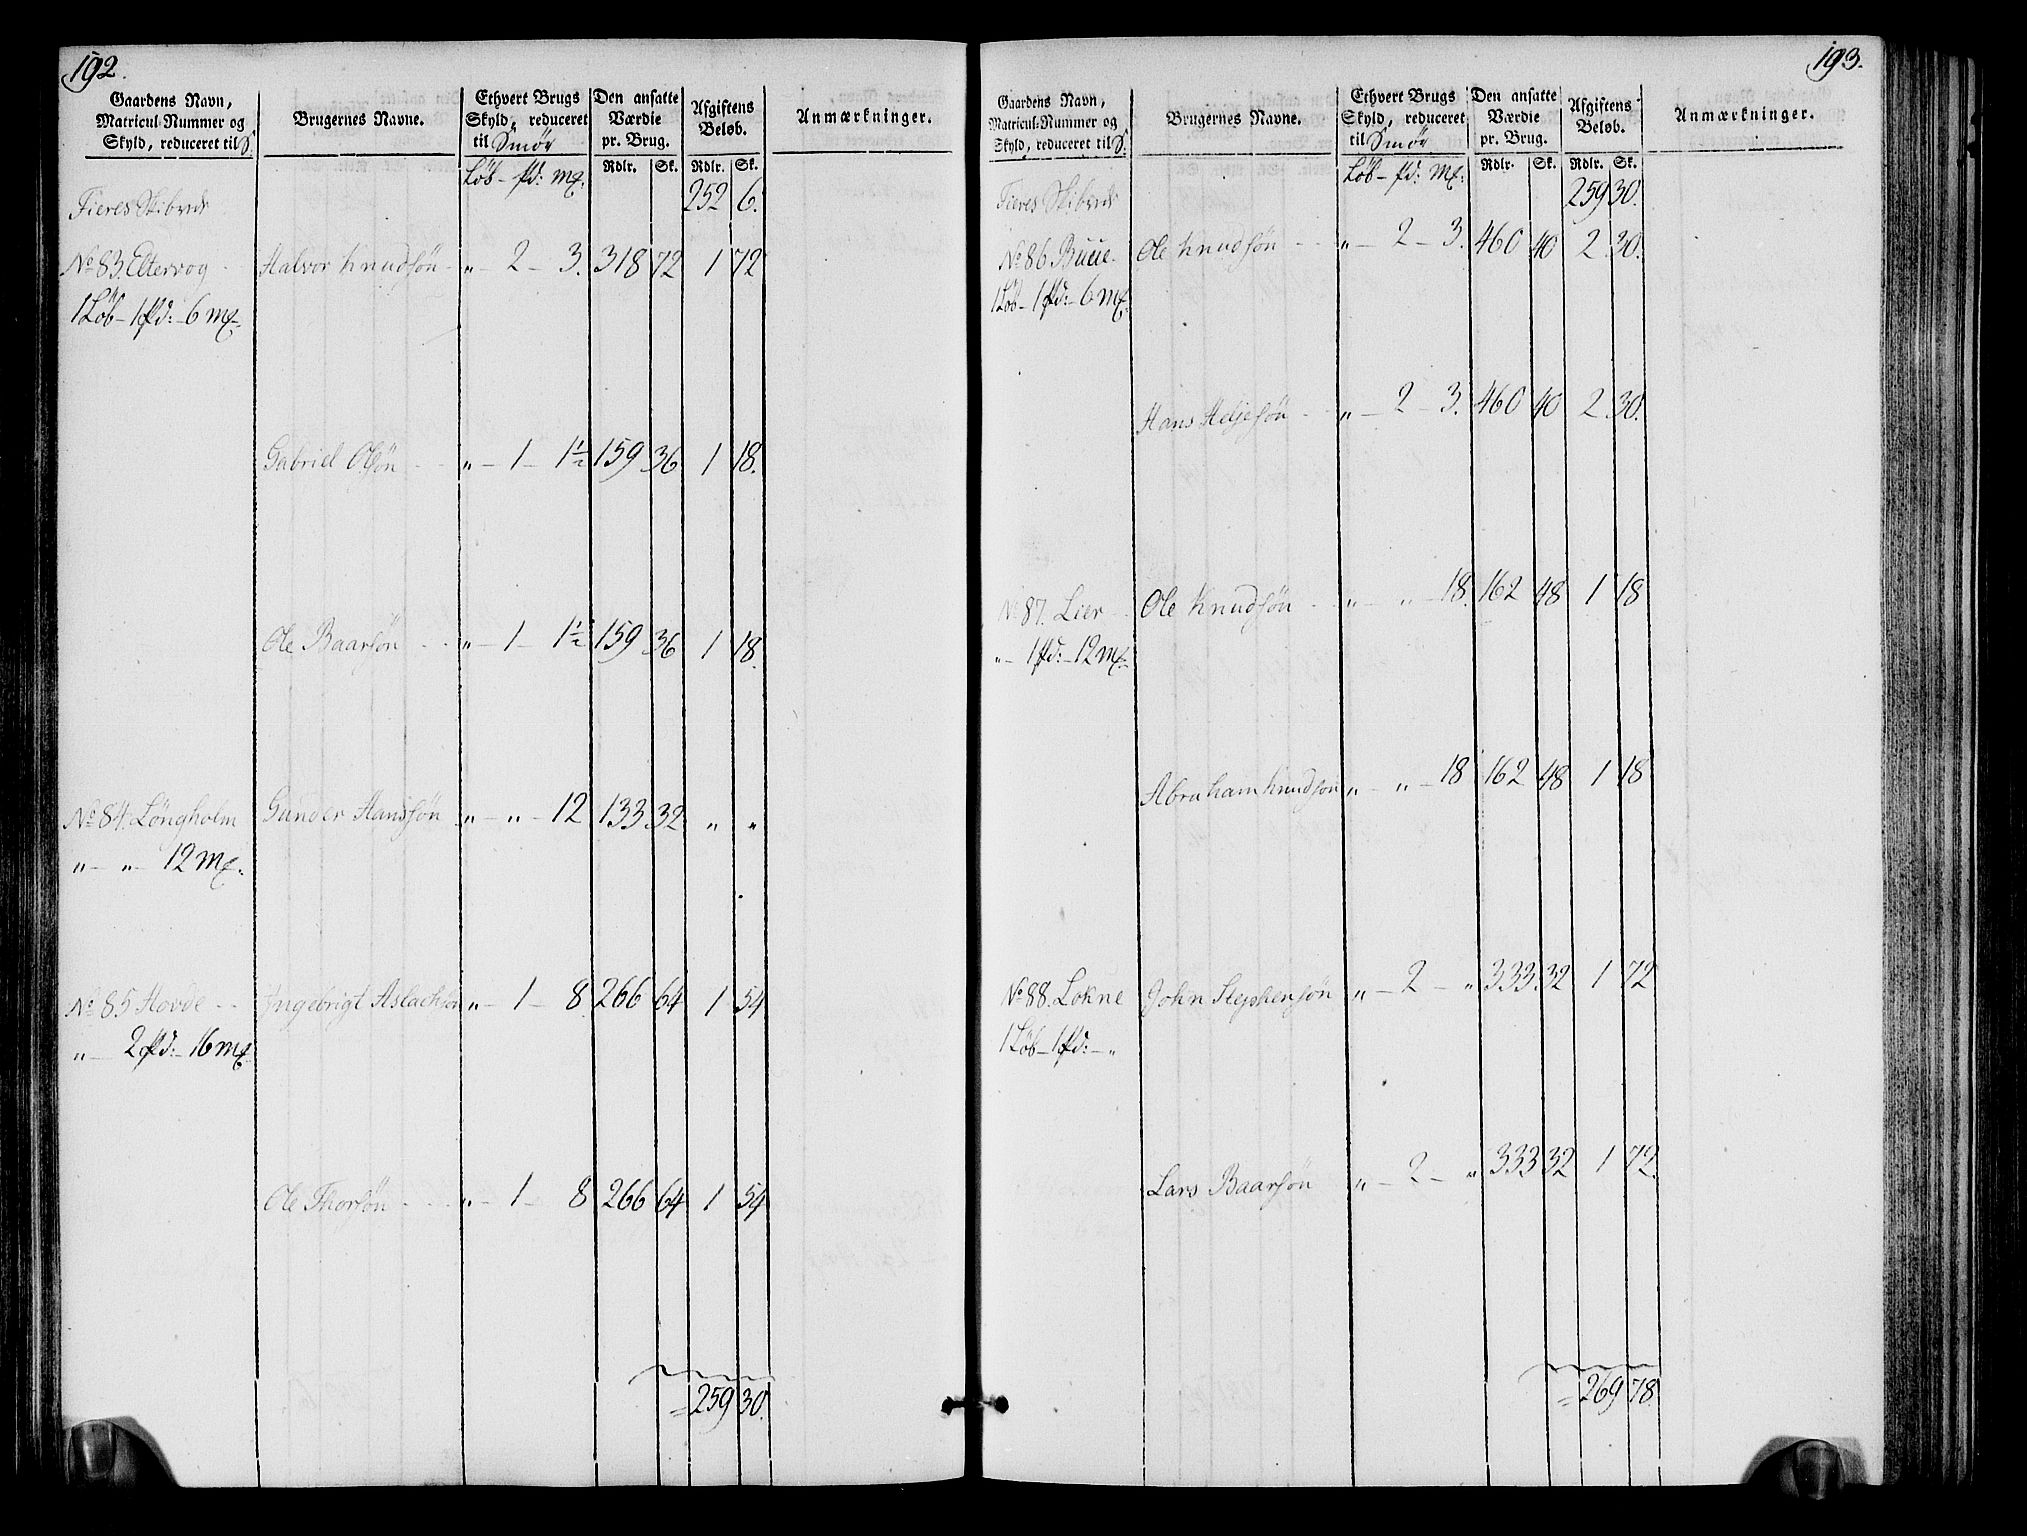 192.
Gaardens Navn, Matricul-Nummer og Skyld, reduceret til S. | Brugernes Navne. | Ethvert Brugs Skyld, reduceret til Smør | Den ansatte Værdie pr. Brug. | Afgiftens Beløb. | Anmærkninger.
Løb – pd: mk. | Rdlr. | Sk. | Rdlr. | Sk.
Fieres Skibrede 252 6.
No 83. Eltervog - Halvor Knudsøn - „ – 2 – 3. 318 72 1 72
1 Løb – 1 pd: – 6 mk.
Gabriel Olsøn - - „ – 1 – 1½ 159 36 1 18.
Ole Baarsøn - - „ – 1 – 1½ 159 36 1 18.
No 84. Løngholm Gunder Hansøn „ – „ – 12 133 32 „ „
„ – „ – 12 mk.
No 85 Hovde - - Ingebrigt Aslachsøn „ – 1 – 8. 266 64 1 54
„ – 2 pd: – 16 mk.
Ole Thorsøn - - - „ – 1 – 8 266 64 1 54
= 259 30.
193.
Gaardens Navn, Matricul-Nummer og Skyld, reduceret til S. | Brugernes Navne. | Ethvert Brugs Skyld, reduceret til Smør | Den ansatte Værdie pr. Brug. | Afgiftens Beløb. | Anmærkninger.
Løb – pd: mk. | Rdlr. | Sk. | Rdlr. | Sk.
Fieres Skibrede 259 30.
No 86 Buue - Ole Knudsøn - - „ – 2 – 3. 460 40 2 30.
1 Løb – 1 pd: – 6 mk.
Hans Heljesøn - - „ – 2 – 3. 460 40 2 30.
No 87. Lier - - Ole Knudsøn - - „ – „ – 18. 162 48 1 18
„ – 1 pd: – 12 mk.
Abraham Knudsøn „ – „ – 18 162 48 1 18
No 88. Lokne John Stephensøn „ – 2 – „ 333 32 1 72
1 Løb – 1 pd: – „
Lars Baarsøn „ – 2 – „ 333 32 1 72.
= 269 78.